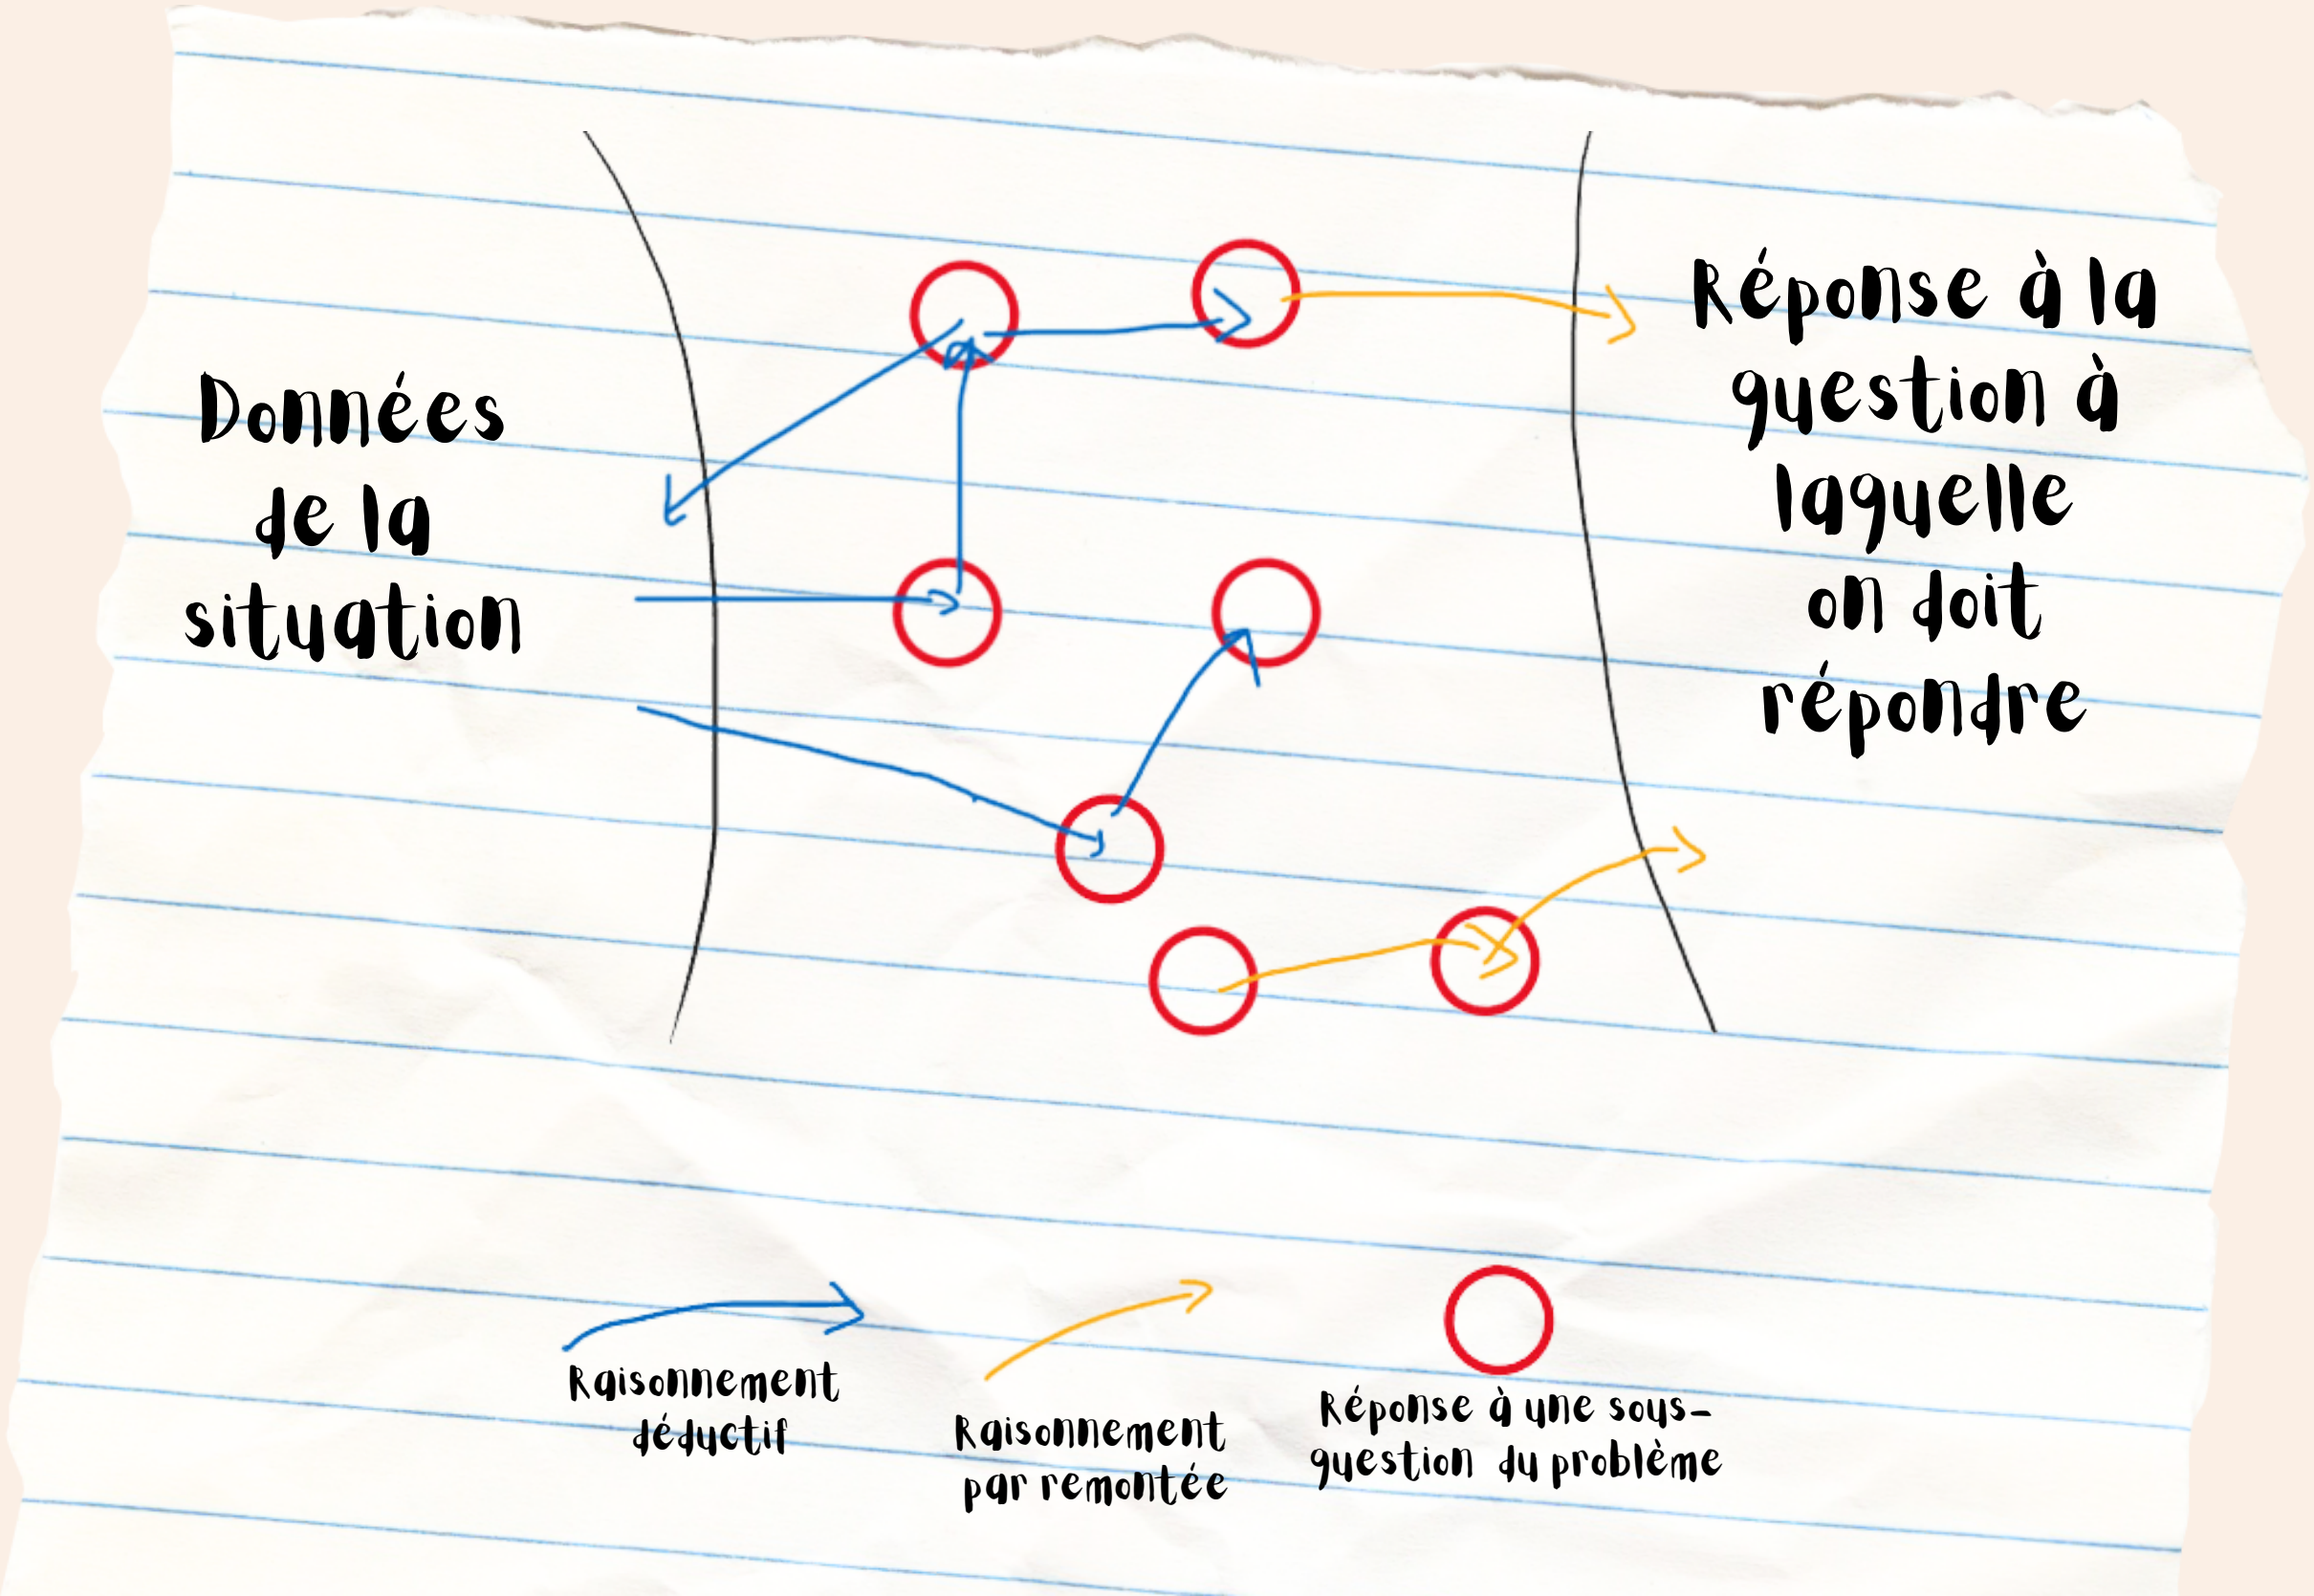 Données
de la
situation
Réponse à la
question à
laquelle
on doit
répondre
Raisonnement
déductif
Raisonnement
par remontée
Réponse à une sous-
question du problème